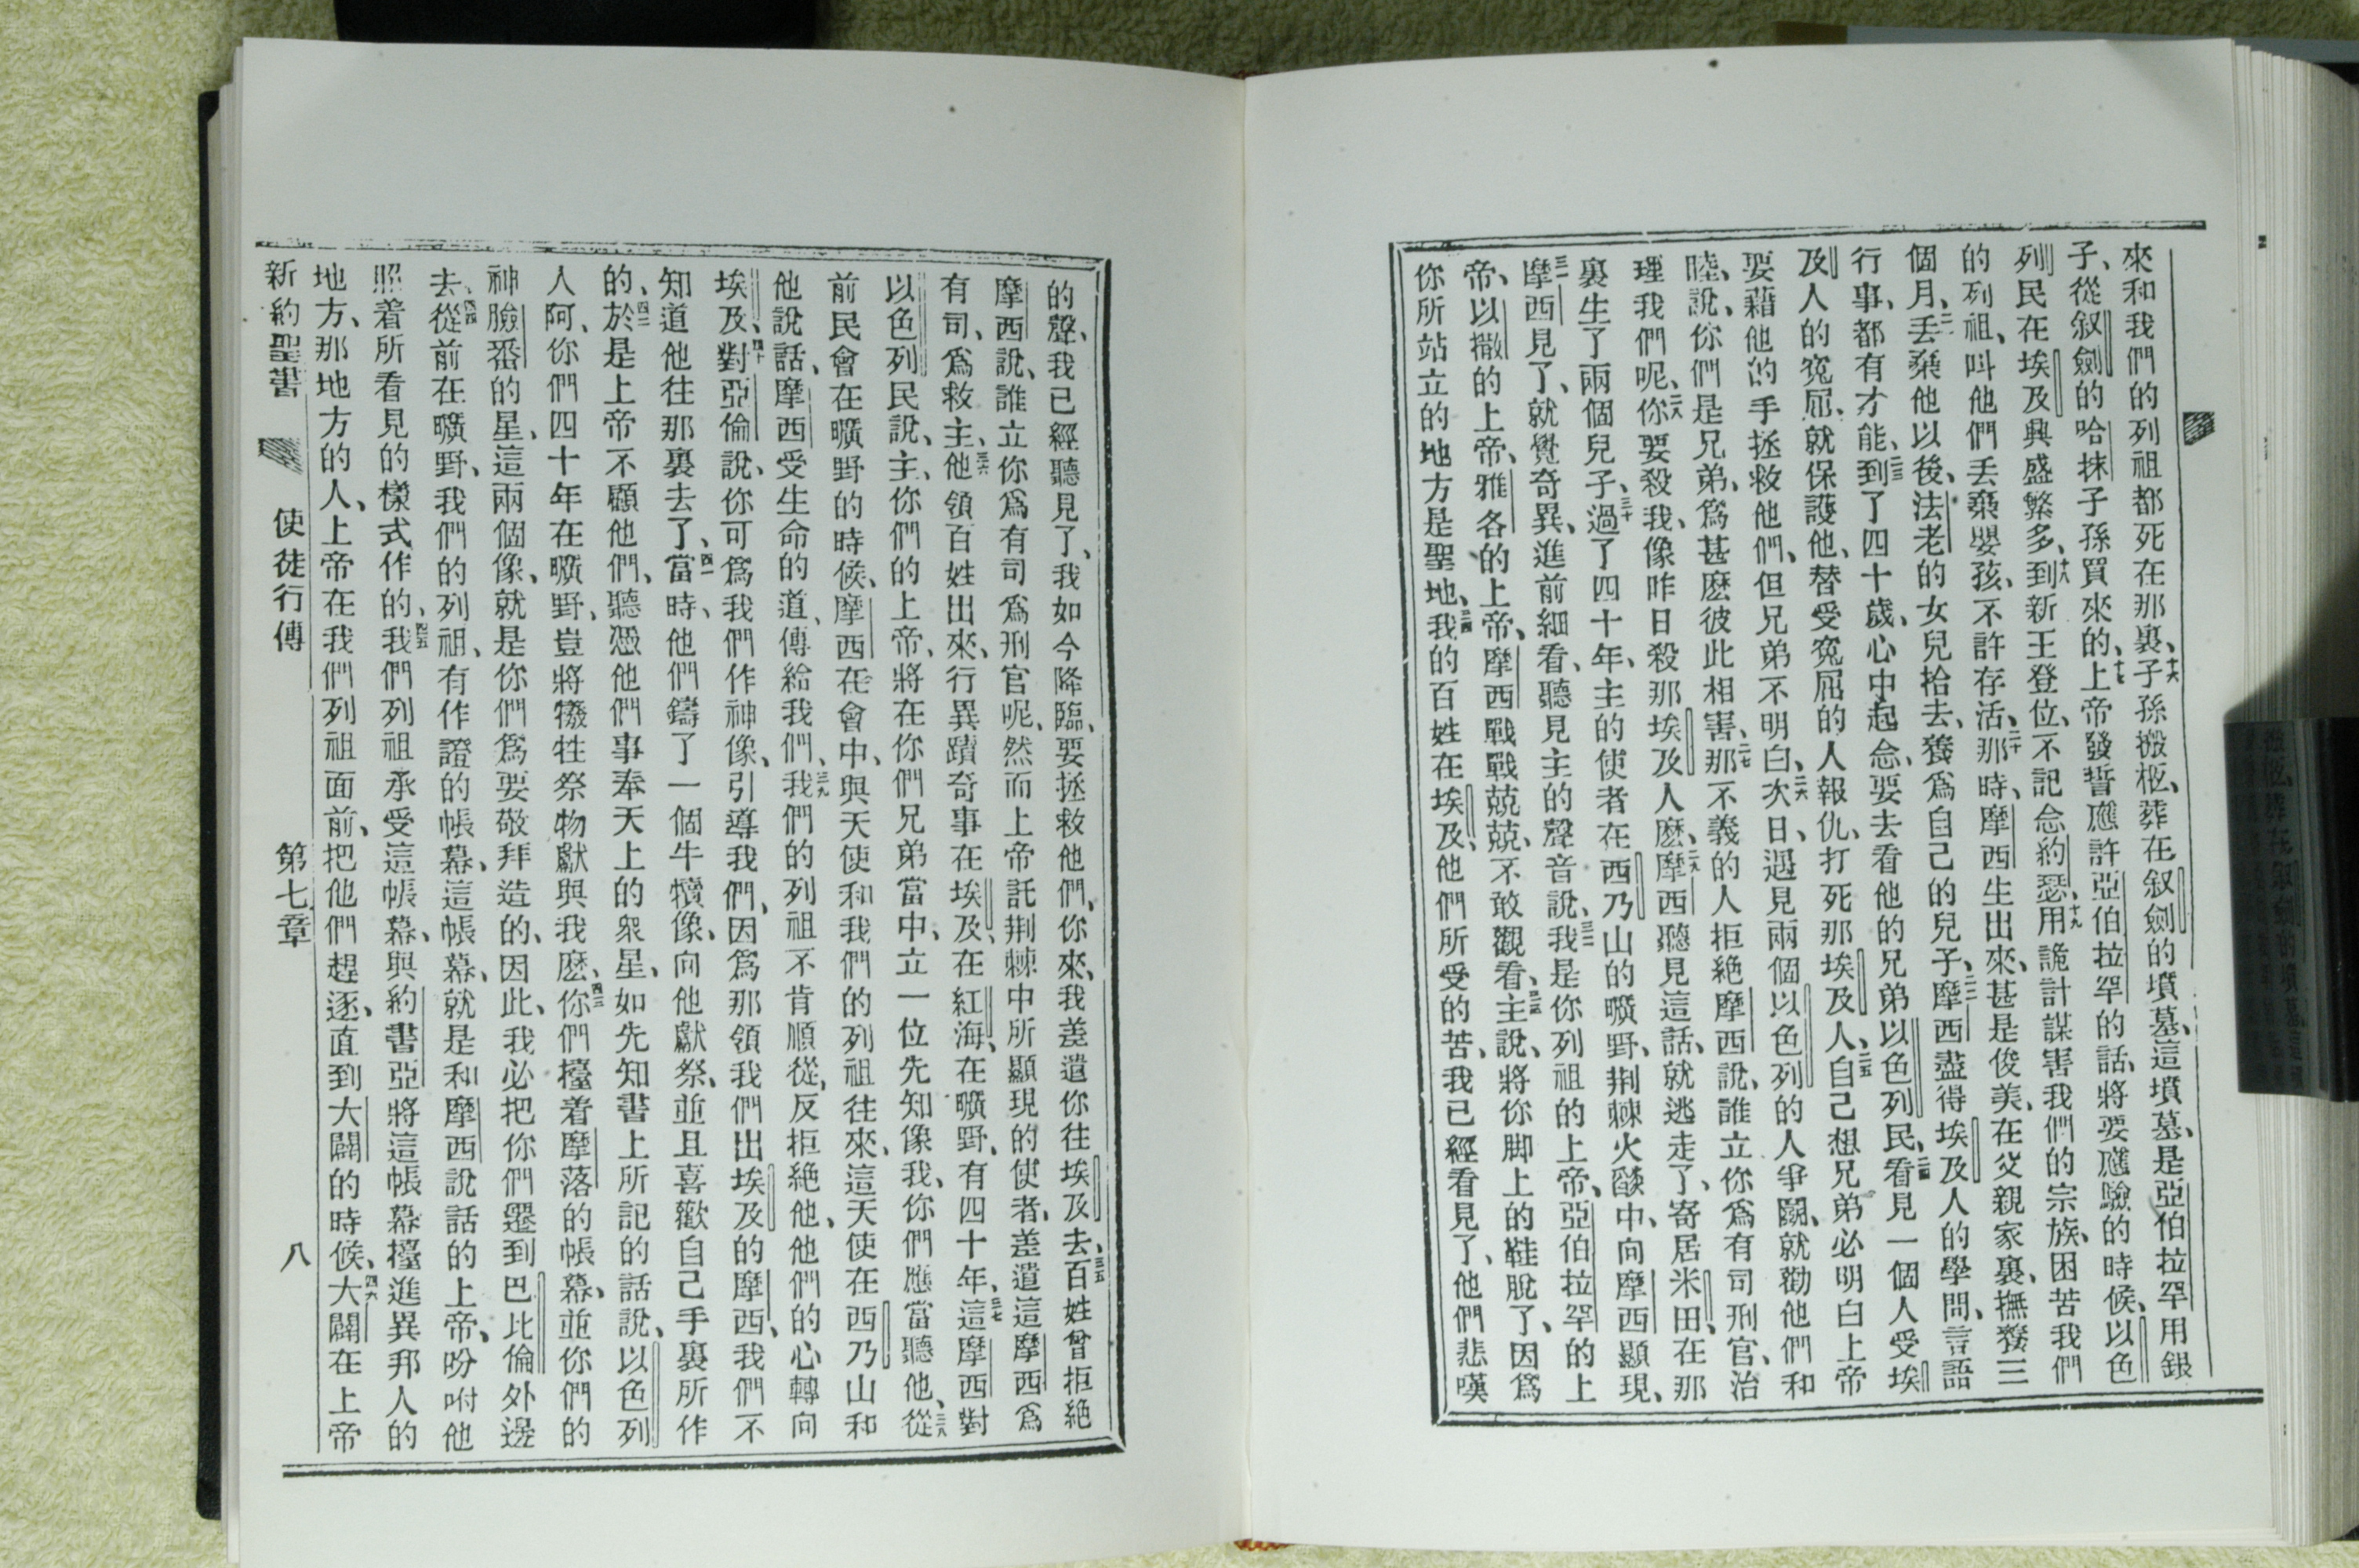 來和我們的列祖都死在那裏、十六子孫搬柩、葬在叙劍的墳墓、這墳墓、是亞伯拉罕用銀
子、從叙劍的哈抹子孫買來的、十七上帝發誓應許亞伯拉罕的話、將要應驗的時候、以色
列民在埃及興盛繁多、十八到新王登位、不記念約瑟、十九用詭計謀害我們的宗族、困苦我們
的列祖、叫他們丢棄嬰孩、不許存活、二十那時、摩西生出來、甚是俊美、在父親家裏、撫養三
個月、二一丢棄他以後、法老的女兒拾去、養爲自己的兒子、二二摩西盡得埃及人的學問、言語
行事、都有才能、二三到了四十歲、心中起念、要去看他的兄弟以色列民、二四看見一個人受埃
及人的寃屈、就保護他、替受寃屈的人報仇、打死那埃及人、二五自己想兄弟必明白上帝
要藉他的手拯救他們、但兄弟不明白、二六次日、遇見兩個以色列的人爭鬭、就勸他們和
睦、說、你們是兄弟、爲甚麽彼此相害、二七那不義的人拒絶摩西、說、誰立你爲有司刑官、治
理我們呢、二八你要殺我、像昨日殺那埃及人麽、二九摩西聽見這話、就逃走了、寄居米田、在那
裏生了兩個兒子、三十過了四十年、主的使者在西乃山的曠野、荆棘火燄中、向摩西顯現、
三一摩西見了、就覺奇異、進前細看、聽見主的聲音說、三二我是你列祖的上帝、亞伯拉罕的上
帝、以撒的上帝、雅各的上帝、摩西戰戰兢兢、不敢觀看、三三主說、將你脚上的鞋脫了、因爲
你所站立的地方是聖地、三四我的百姓在埃及、他們所受的苦、我已經看見了、他們悲嘆
的聲、我已經聽見了、我如今降臨、要拯救他們、你來、我差遣你往埃及去、三五百姓曾拒絶
摩西說、誰立你爲有司爲刑官呢、然而上帝託荆棘中所顯現的使者、差遣這摩西爲
有司、爲救主、三六他領百姓出來、行異蹟奇事在埃及、在紅海、在曠野、有四十年、三七這摩西對
以色列民說、主、你們的上帝、將在你們兄弟當中、立一位先知像我、你們應當聽他、三八從
前民會在曠野的時候、摩西在會中、與天使和我們的列祖往來、這天使在西乃山和
他說話、摩西受生命的道、傳給我們、三九我們的列祖不肯順從、反拒絶他、他們的心轉向
埃及、四十對亞倫說、你可爲我們作神像、引導我們、因爲那領我們出埃及的摩西、我們不
知道他往那裏去了、四一當時、他們鑄了一個牛犢像、向他獻祭、並且喜歡自己手裏所作
的、四二於是上帝不顧他們、聽憑他們事奉天上的衆星、如先知書上所記的話說、以色列
人阿、你們四十年在曠野、豈將犧牲祭物獻與我麽、四三你們擡着摩落的帳幕、並你們的
神臉番的星、這兩個像、就是你們爲要敬拜造的、因此、我必把你們遷到巴比倫外邊
去、四四從前在曠野、我們的列祖、有作證的帳幕、這帳幕、就是和摩西說話的上帝、吩咐他
照着所看見的樣式作的、四五我們列祖承受這帳幕、與約書亞將這帳幕擡進異邦人的
地方、那地方的人、上帝在我們列祖面前、把他們趕逐、直到大闢的時候、四六大闢在上帝
新約聖書 使徒行傳 第七章 八